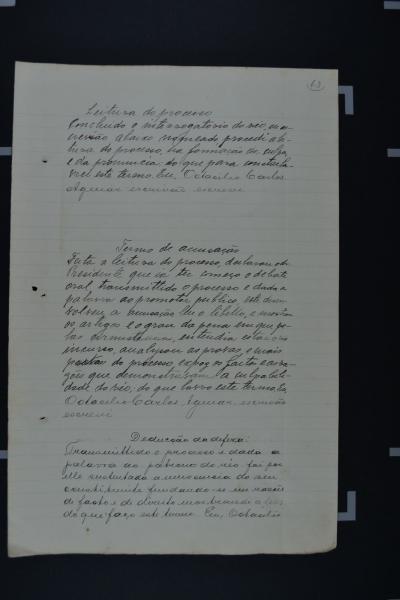 63
Leitura do processo
Concluido o interrogatorio do réo, eu es-
crivão abaixo nomeado procedi a lei-
tura do processo, na formação da culpa
e da pronuncia: do que para constar la-
vrei este termo. Eu, Octacilio Carlos
Aguiar escrivão escrevi
Termo de accusação
Feita a leitura do processo, declarou o dr.
Presidente que ia ter começo o debate
oral, transmittido o processo e dada a
palavra ao promotor publico, este desen-
volveu a accusação leu o libello, e mostrou
os artigos e o grau da pena em que pe-
las circumstancias, entendia estar o réo
incurso, analysou as provas, e mais
peças do processo expoz os factos e as ra-
zões que demonstravam a culpabili-
dade do réo; do que lavro este termo. Eu,
Octacilio Carlos Aguiar, escrivão
escrevi
Deducção da defeza:
Transmittido o processo e dada a
palavra ao patrono do réo foi por
elle sustentada a innocencia do seu
constituinte fundando-se em razões
de facto e de direito
do que faço este termo. Eu, Octacilio